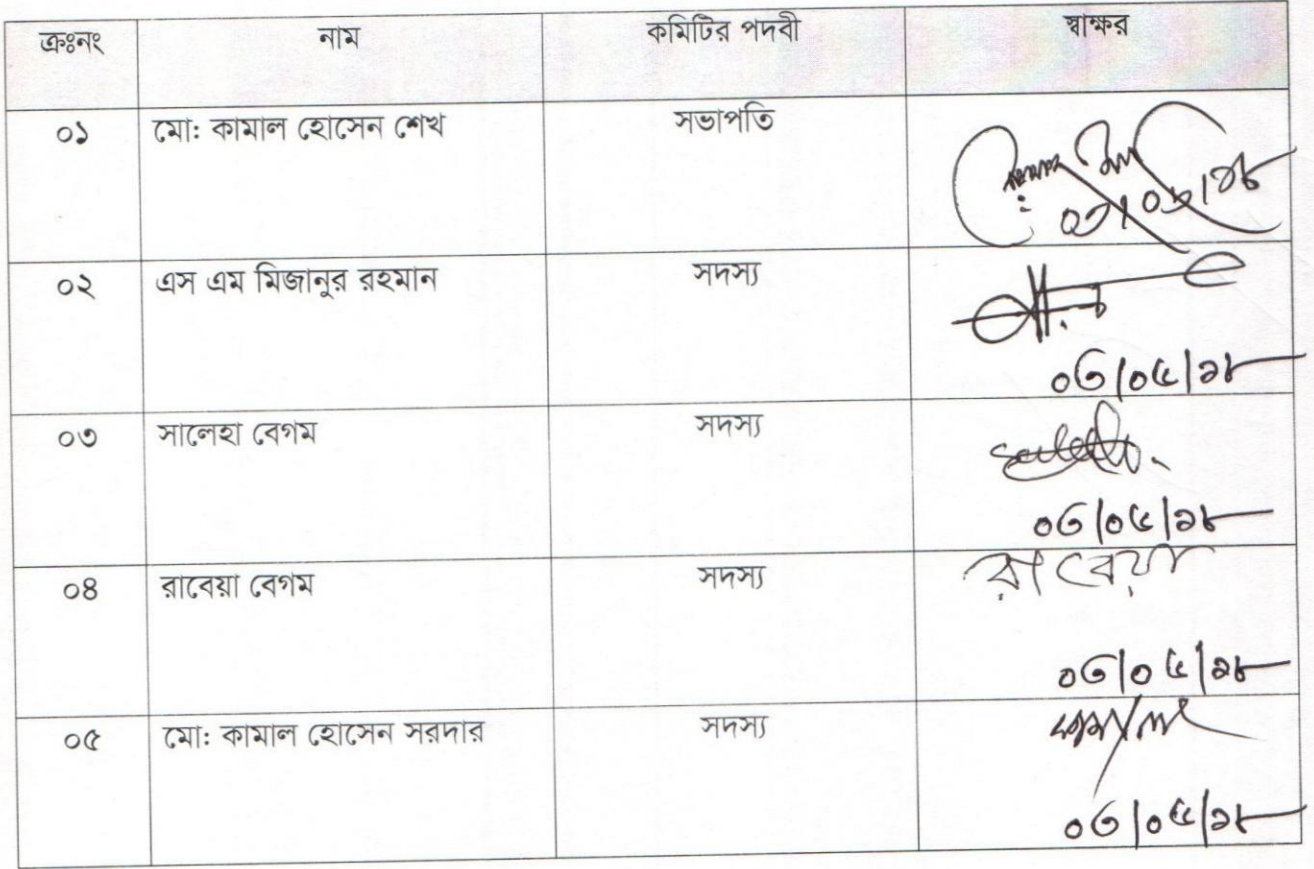 ক্রঃনং নাম কমিটির পদবী স্বাক্ষর
০১ মো: কামাল হোসেন শেখ সভাপতি
০২ এস এম মিজানুর রহমান সদস্য
০৬/০৫/১৮
০৩ সালেহা বেগম সদস্য
০৬/০৫/১৮
০৪ রাবেয়া বেগম সদস্য রাবেয়া
০৬/০৫/১৮
০৫ মো: কামাল হোসেন সরদার সদস্য
০৬/০৫/১৮